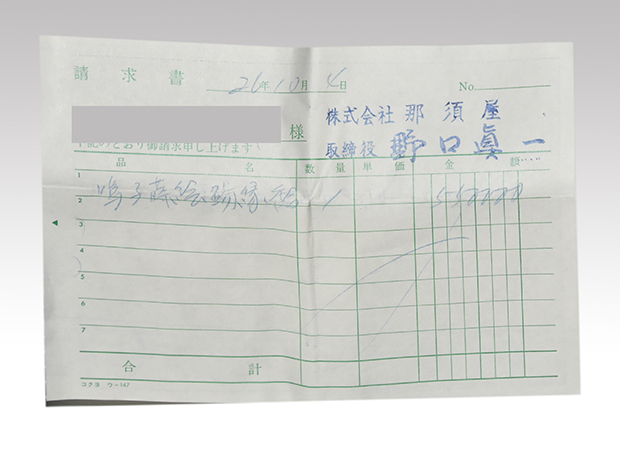 請求書 26年10月4日 No.
様 株式会社 那須屋
下記のとおり御請求申し上げます 取締役 野口眞一
品名 数量 単価 金額
1
2 1
3
4
5
6
7
合計
コクヨ ウ-147